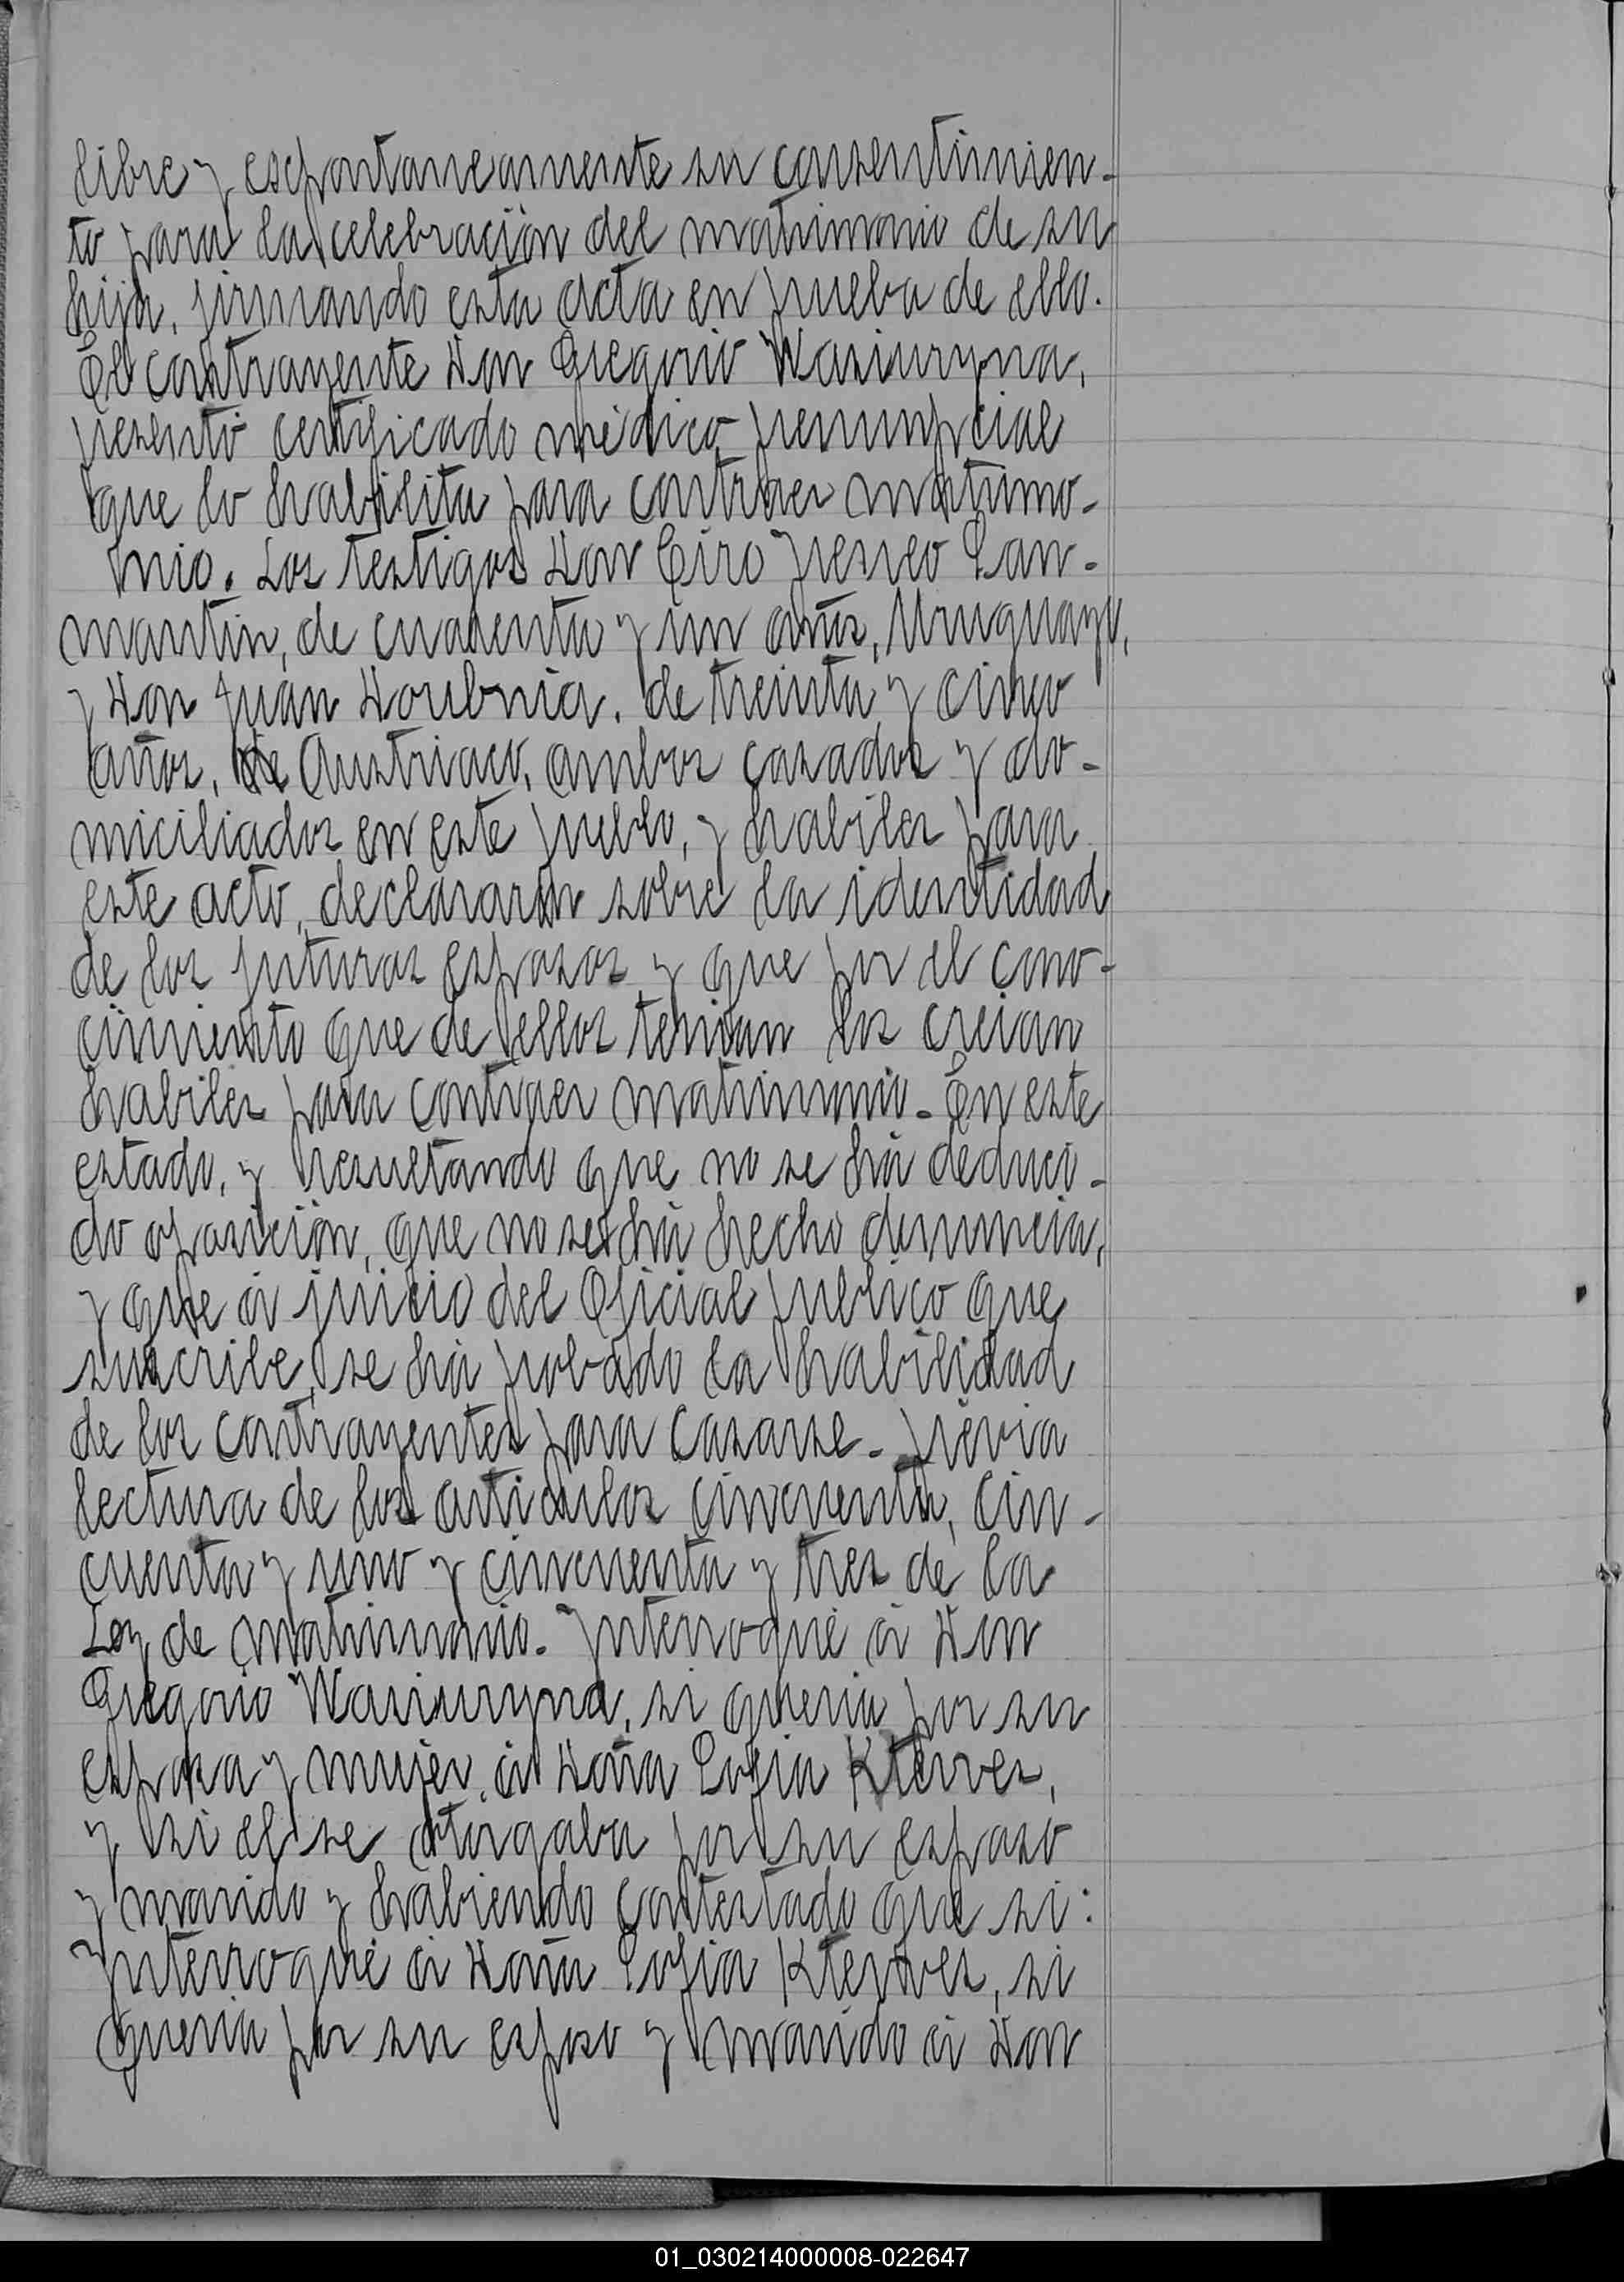 libre y espontaneamente su consentimien-
to para la celebración del matrimonio de su
hija, firmando esta acta en prueba de ello.
El contrayente Don Gregorio Wasiuryna,
presentó certificado médico prenupcial
que lo habilita para contraer matrimo-
nio. Los testigos Don Ciro
martin, de cuarenta y un años, Uruguayo,
y Don Juan de treinta y cinco
años, Austriaco, ambos casados y do-
miciliados en este pueblo, y habiles para
este acto, declararon sobre la identidad
de los futuros esposos y que por el cono-
cimiento que de ellos tenian los creian
habiles para contraer matrimonio. En este
estado, y resultando que no se há deduci-
do oposición, que no se há hecho denuncia,
y que á juicio del Oficial publico que
suscribe, se há probado la habilidad
de los contrayentes para casarse. previa
lectura de los articulos cincuenta, cin-
cuenta y uno y cincuenta y tres de la
Ley de matrimonio. Interrogué á Don
Gregorio Wasiuryna, si queria por su
esposa y mujer, á Doña Sofia Kterves,
y si el se otorgaba por su esposo
y marido y habiendo contestado que si:
Interrogué á Doña Sofia Kterves, si
queria por su esposo y marido á Don
01_030214000008-022647